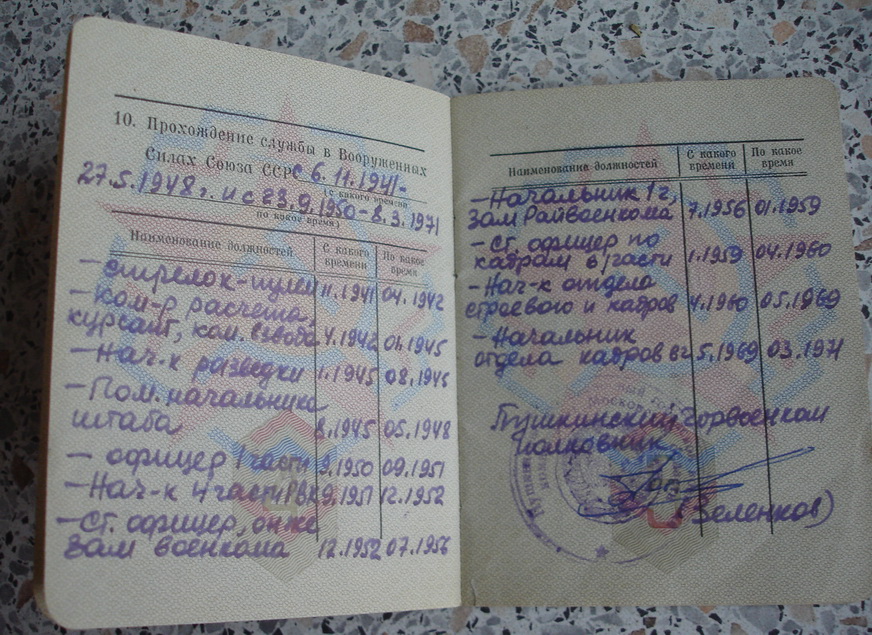 10. Прохождение службы в Вооруженных
Силах Союза ССР с 6.11.1941-
(с какого времени
27.5.1948г. и с 23.9.1950-8.3.1971
по какое время)
Наименование должностей С какого времени По какое время
-стрелок- 11.1941 04.1942
-Ком-р расчета,
курсант, ком. взвода 4.1942 01.1945
-Нач-к разведки 1.1945 08.1945
-Пом. начальника
штаба 8.1945 05.1948
- офицер 1 части 9.1950 09.1951
-Нач-к 4 части РВК 9.1951 12.1952
-Ст. офицер, он же
зам военкома 12.1952 07.1956
Наименование должностей С какого времени По какое время
-Начальник 1 ч,
зам Райвоенкома 7.1956 01.1959
-Ст. офицер по
кадрам в/части 1.1959 04.1960
-Нач-к отдела
строевого и кадров 4.1960 05.1969
-Начальник
отдела кадров 5.1969 03.1971
Пушкинский Горвоенком
полковник
(Зеленков)